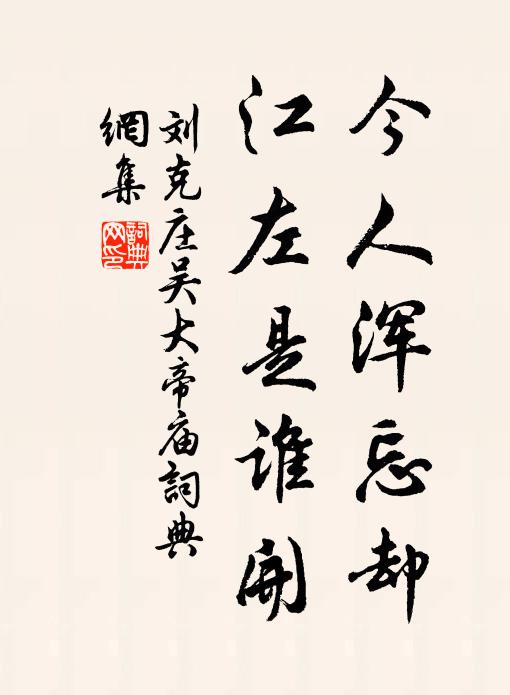 今人浑忘却
江左是谁开
刘克庄吴大帝庙詞典
網集
詞典
网印